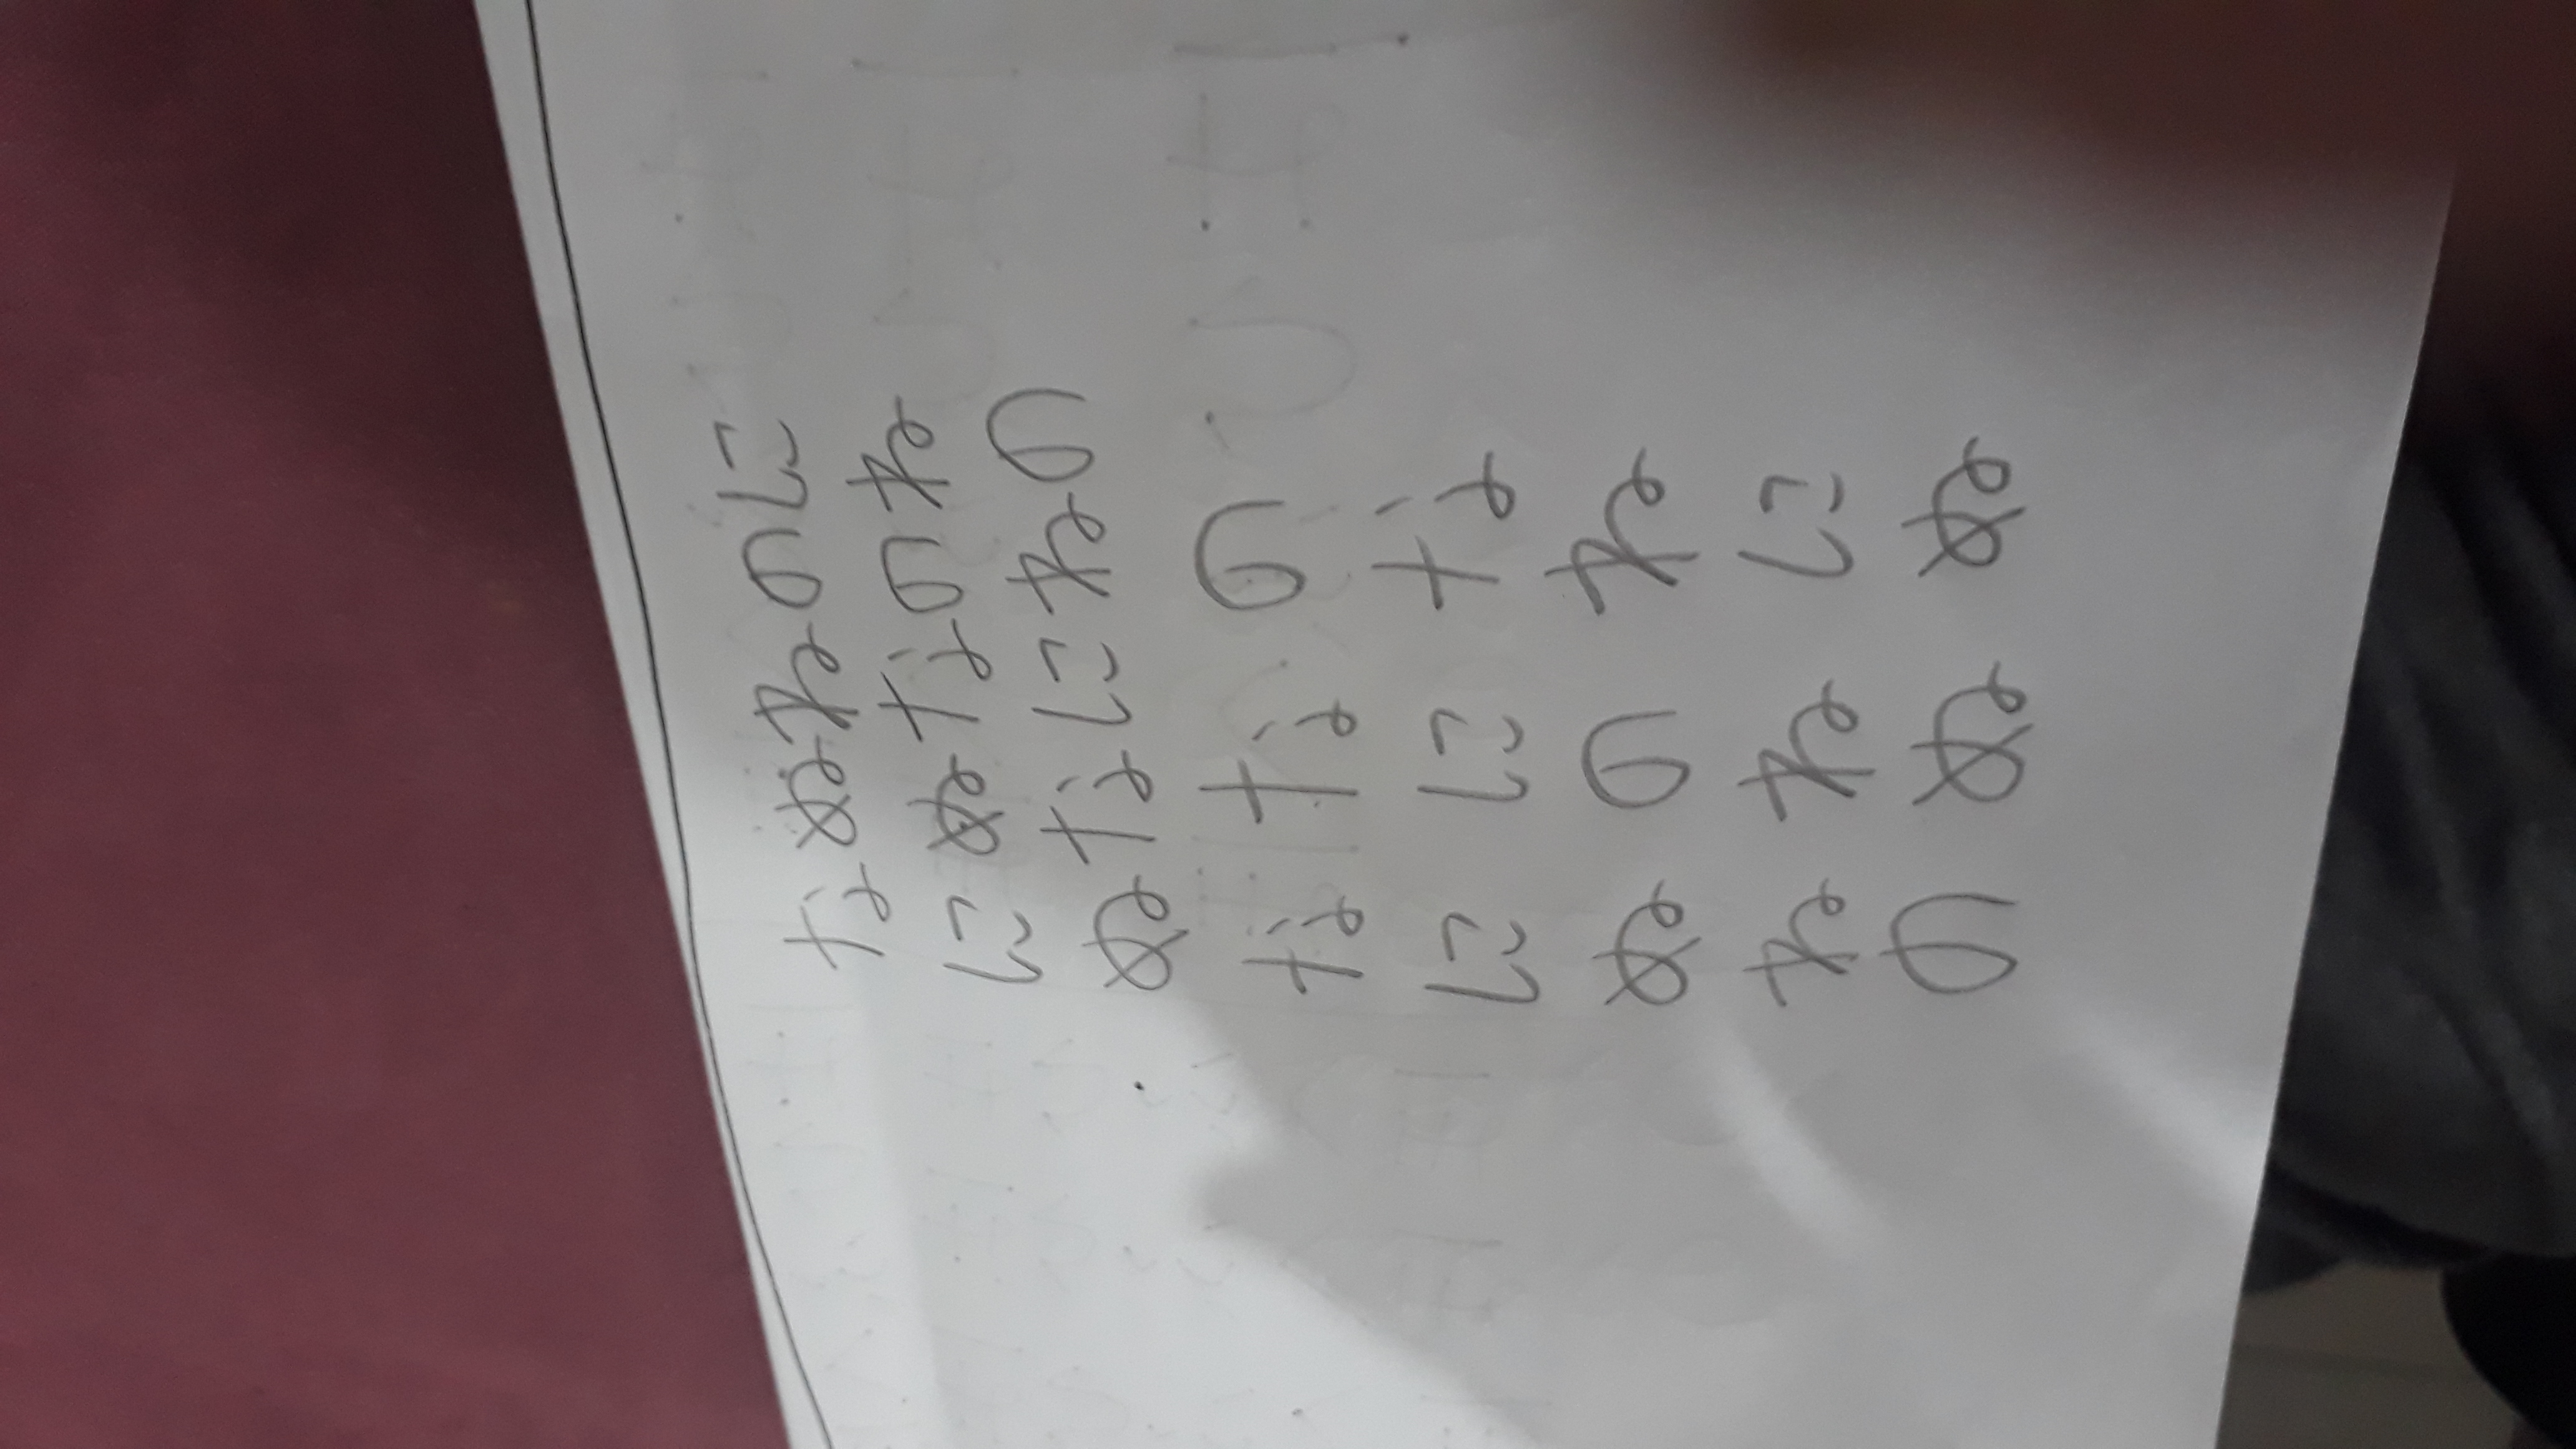 なぬねのに
にぬなのね
ぬなにねの
な な の
に に な
ぬ の ね
ね ね に
の ぬ ぬ